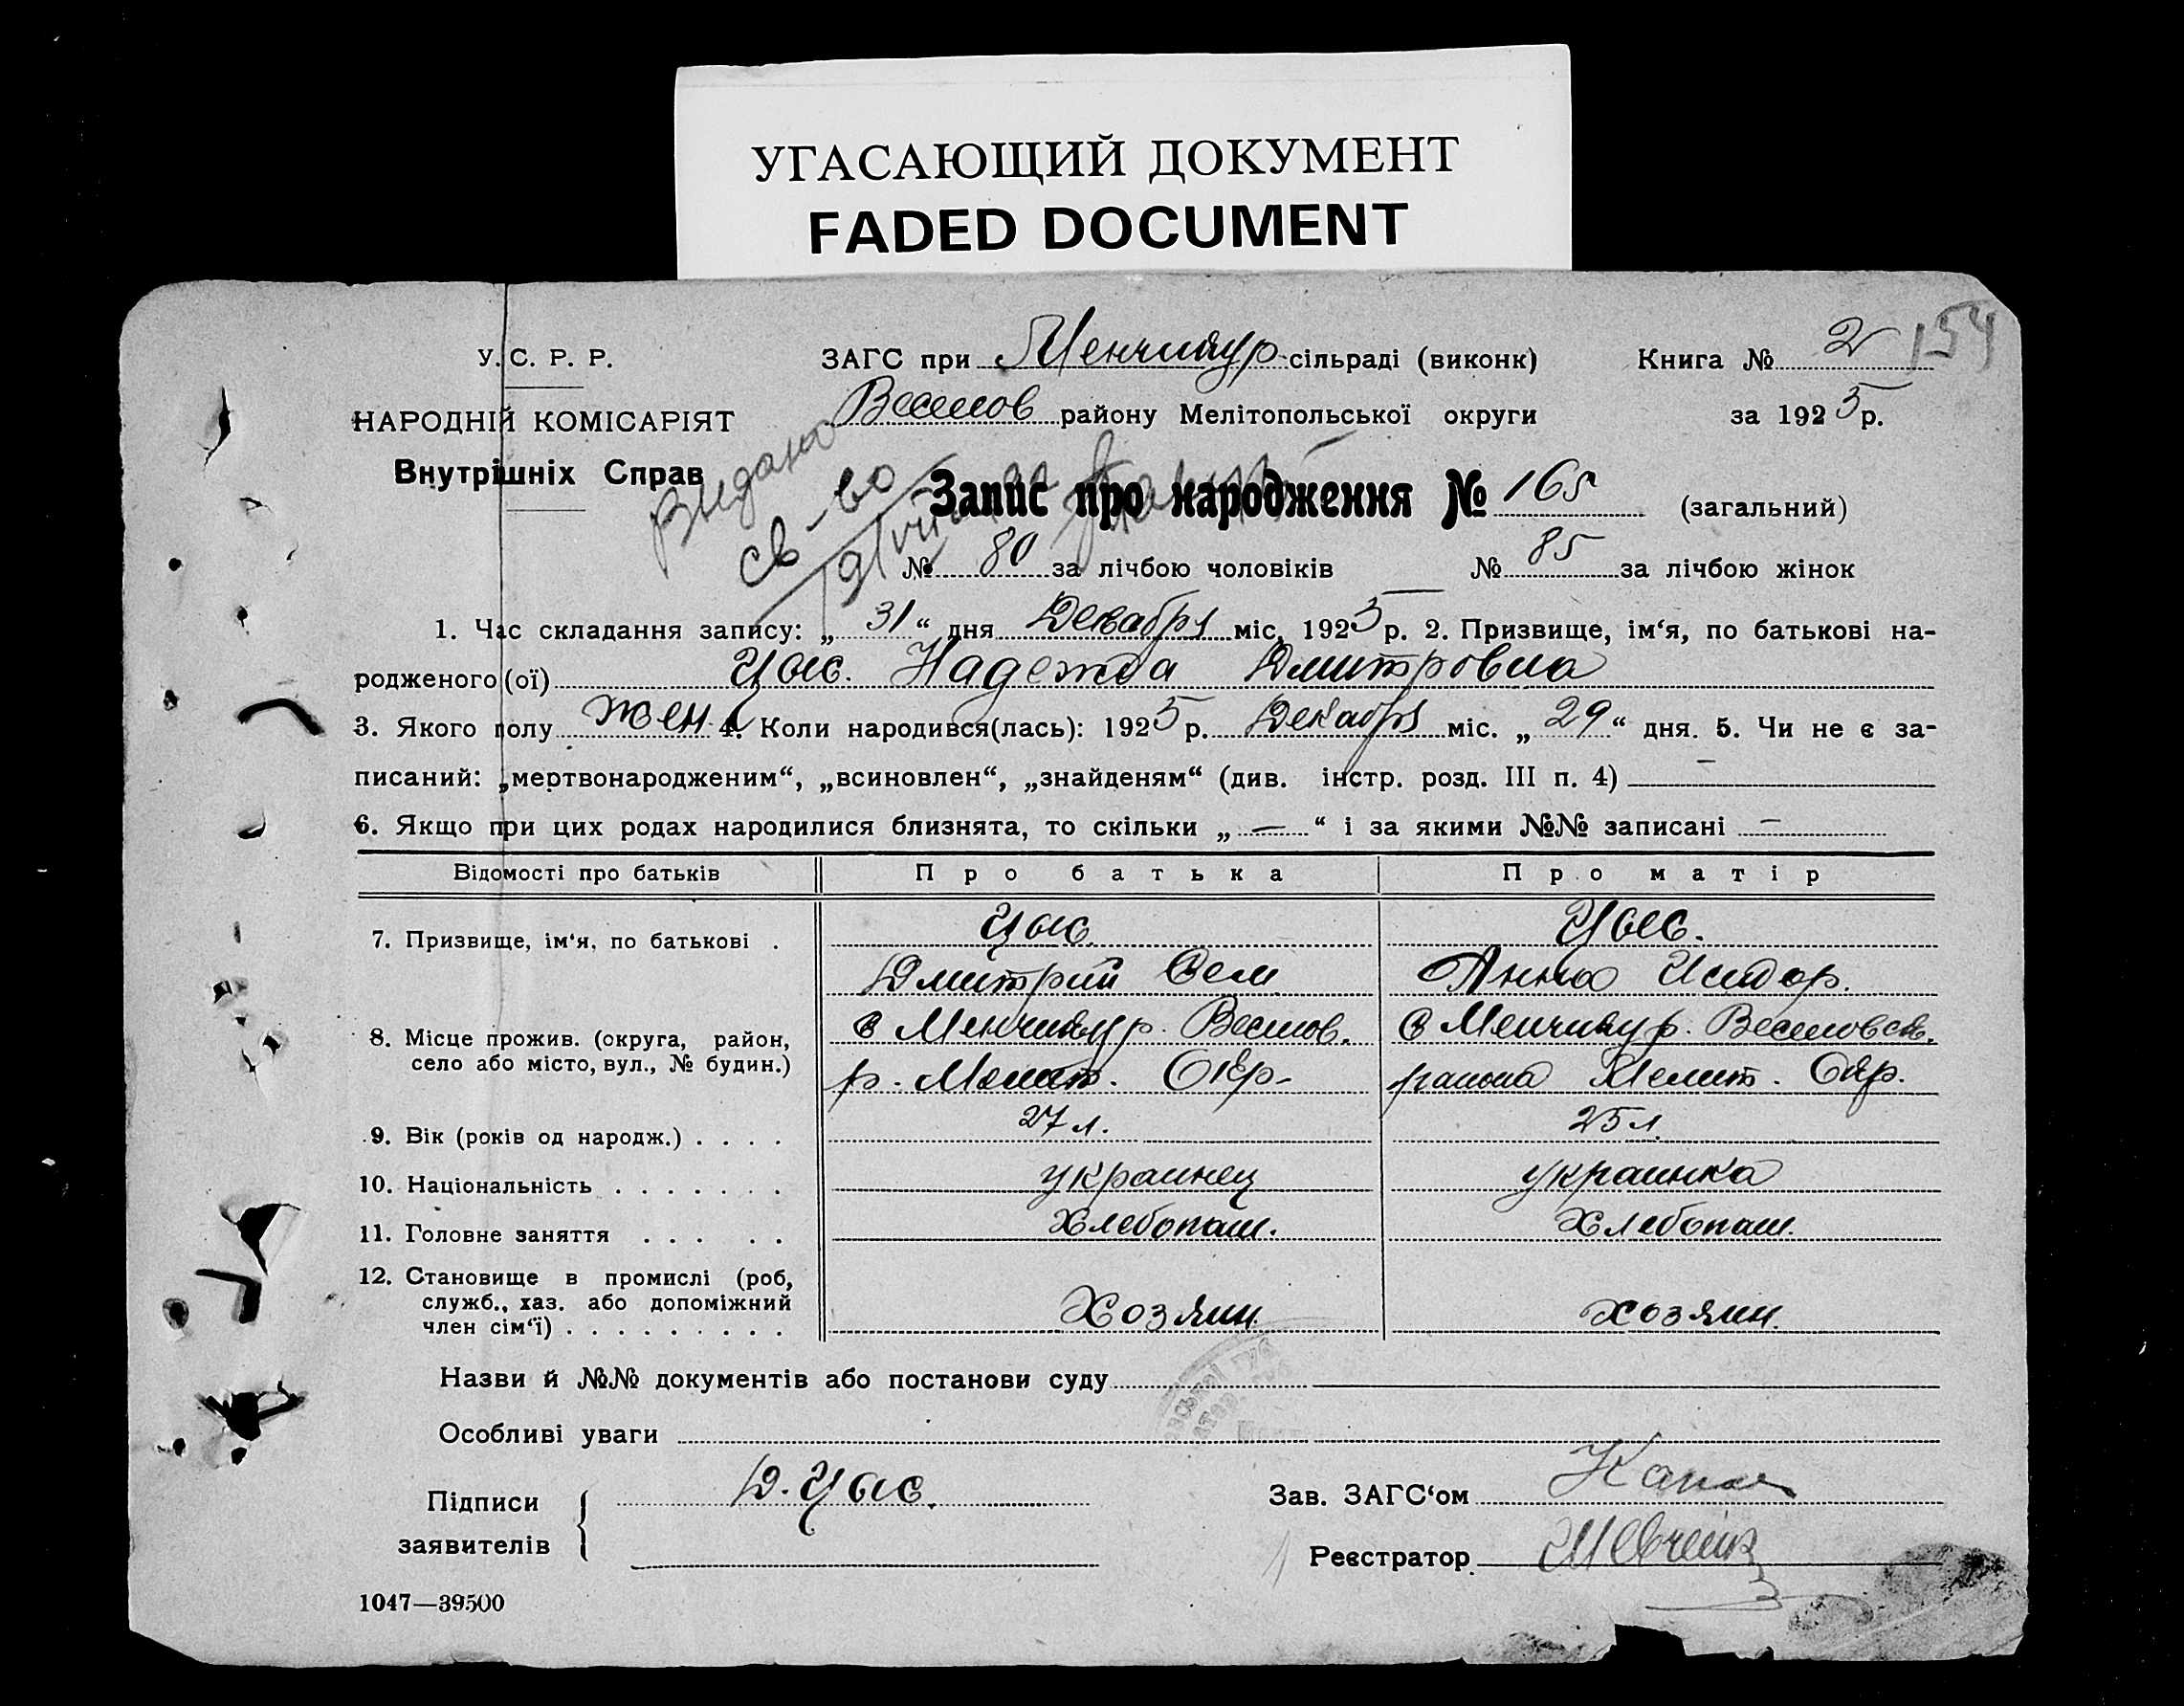 УГАСАЮЩИЙ ДОКУМЕНТ
FADED DOCUMENT
154
У. С. Р. Р.
НАРОДНІЙ КОМІСАРІЯТ
Внутрішніх Справ
ЗАГС при Менчикур сільраді (виконк)
Книга № 2
Веселов району Мелітопольської округи
за 1925 р.
Выдано
св-во
Запис про народження № 165 (загальний)
№ 80 за лічбою чоловіків № 85 за лічбою жінок
1. Час складання запису: „31“ дня Декабря міс. 1925 р. 2. Призвище, ім‘я, по батькові на-
родженого (ої) Цыс. Надежда Дмитровна
3. Якого полу жен. 4. Коли народився(лась): 1925 р. Декабря міс. „29“ дня. 5. Чи не є за-
писаний: „мертвонародженим“, „всиновлен“, „знайденям“ (див. інстр. розд. III п. 4) —
6. Якщо при цих родах народилися близнята, то скільки „—“ і за якими №№ записані —
Відомості про батьків Про батька Про матір
7. Призвище, ім‘я, по батькові . Цыс. Цыс.
Дмитрий Сем Анна Исидор.
8. Місце прожив. (округа, район, село або місто, вул., № будин.) с Менчикур. Веселов. с Менчикур. Веселовск.
р. Мелит. Окр- района Мелит. Окр.
9. Вік (років од народж.) . . . . 27 л. 25 л.
10. Національність . . . . . . . украинец украинка
11. Головне заняття . . . . . Хлебопаш. Хлебопаш.
12. Становище в промислі (роб,
служб., хаз. або допоміжний
член сім‘ї) . . . . . . . . . Хозяин. хозяин.
Назви й №№ документів або постанови суду
Особливі уваги
Підписи
заявителів
Д. Цыс.
Зав. ЗАГС‘ом
Реєстратор
1047—39500